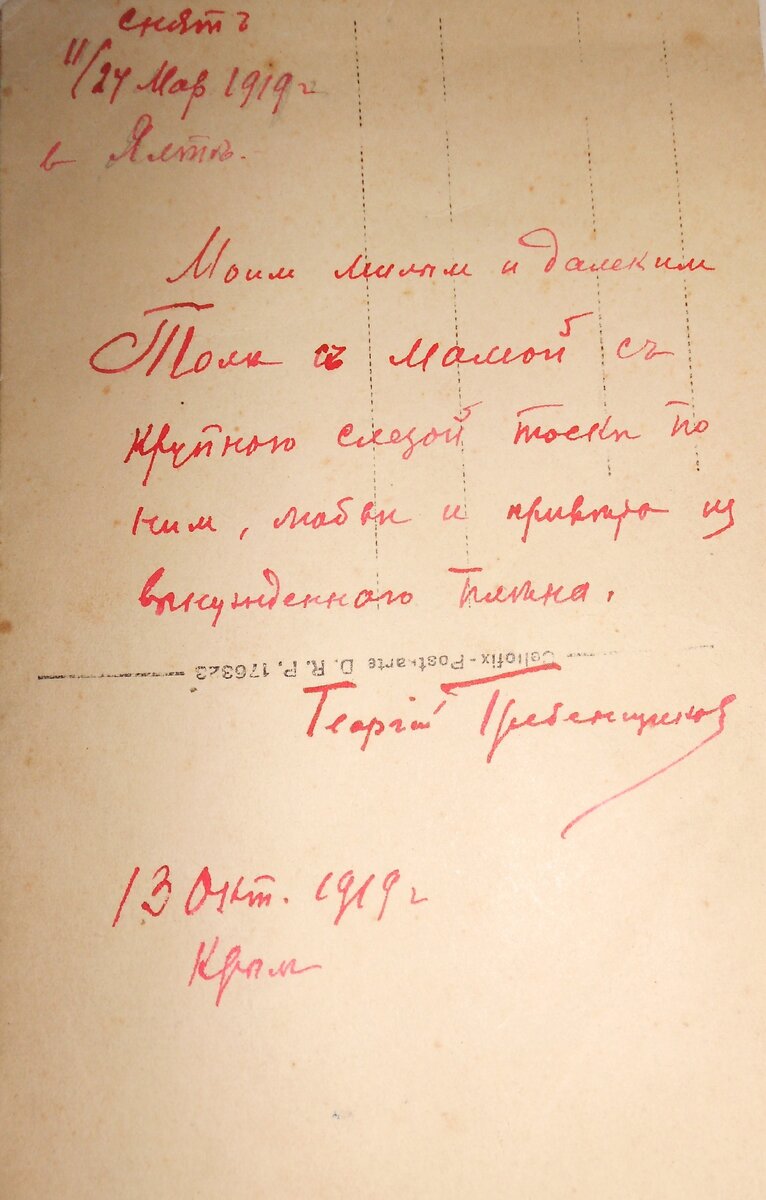 снятъ
11/24 Мар 1919 г
в Ялтѣ.
Моим милым и далеким
Толѣ съ Мамой съ
крупною слезой тоски по
ним, любви и привѣта из
вынужденного плѣна.
Cellofix-Postkarte D. R. P. 176323
Георгій Гребенщиков
13 Окт. 1919 г
Крым